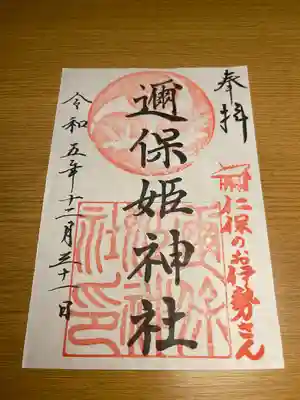 奉拝
仁保のお伊勢さん
邇保姫神社
令和五年十二月三十一日